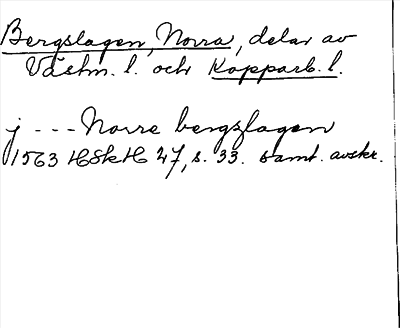 Bergslagen, Norra, delar av
Västm. l. och Kopparb. l.
j --- Norre bergzlagen
1563 HSkH 27, s. 33. samt. avskr.